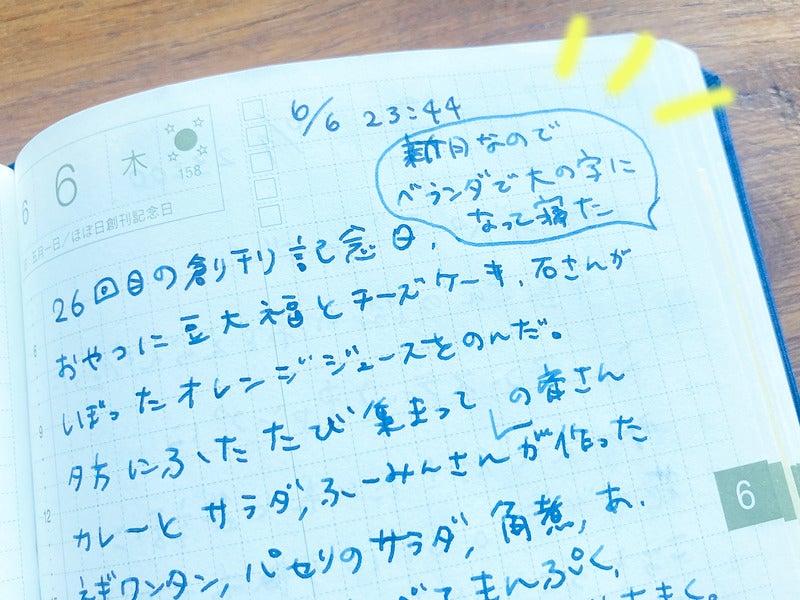 6/6 23:44
新月なので
ベランダで大の字に
なって寝た
6
6
木
158
五月一日/ほぼ日創刊記念日
26回目の創刊記念日、
おやつに豆大福とチーズケーキ、石さんが
しぼったオレンジジュースをのんだ。
夕方にふたたび集まって
の容さん
カレーとサラダ、ふーみんさんが作った
ねぎワンタン、パセリのサラダ、角煮、あ、
べてまんぷく、
6
6
9
12